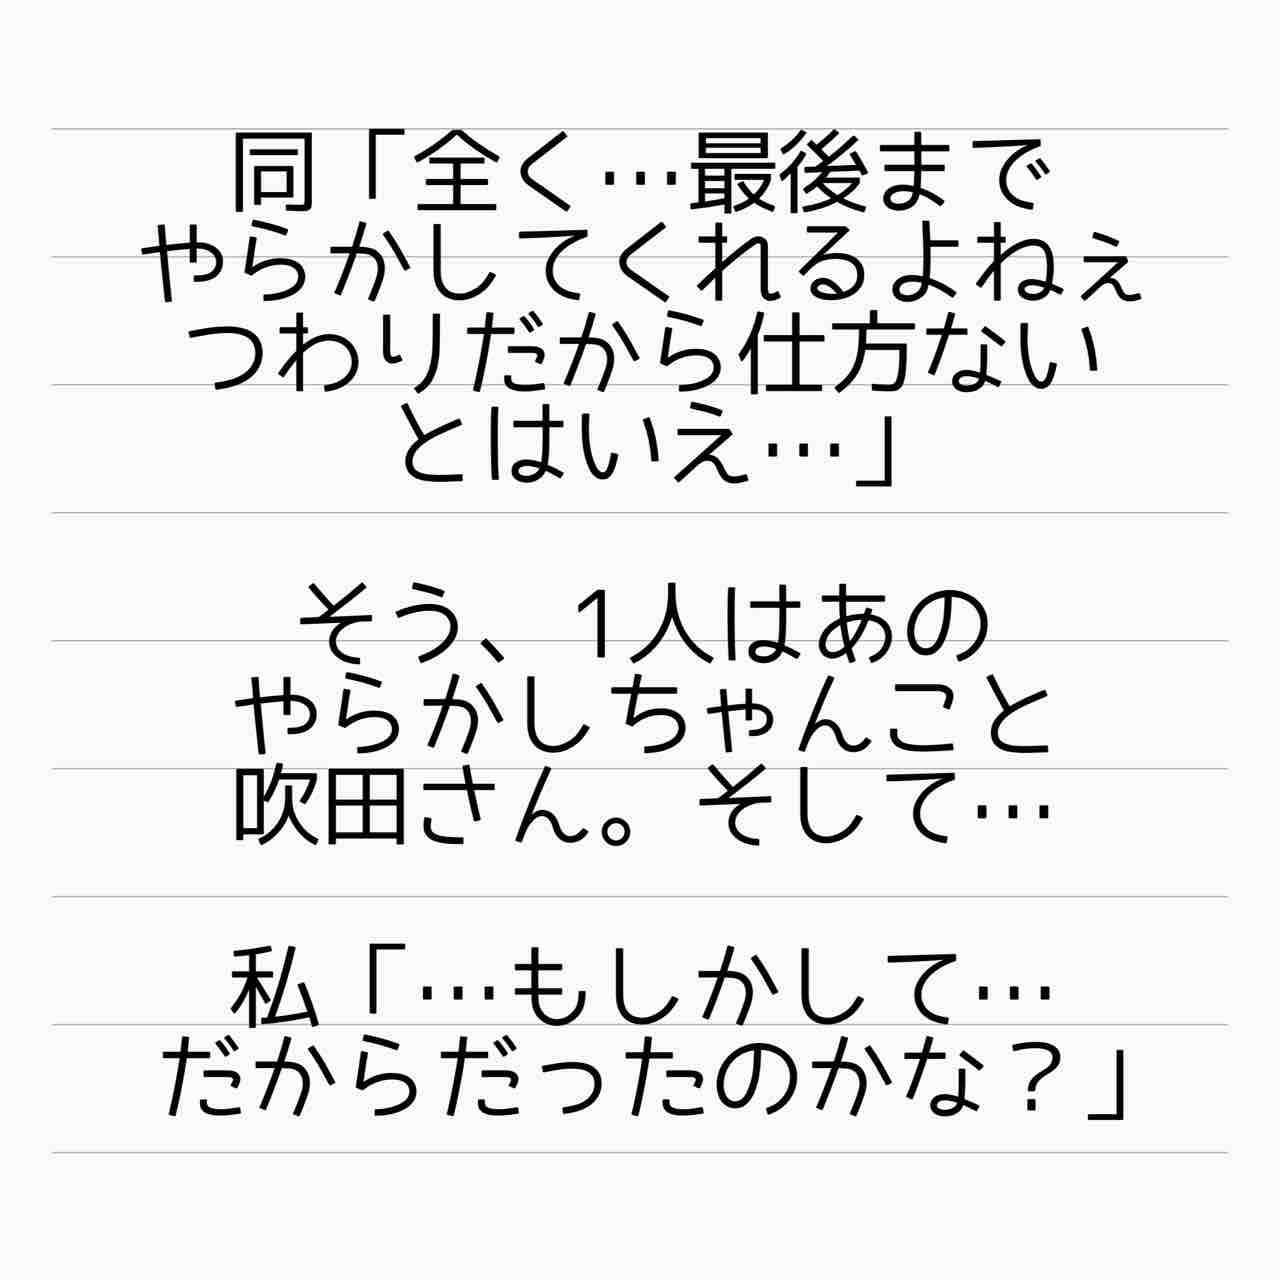 同「全く…最後まで
やらかしてくれるよねぇ
つわりだから仕方ない
とはいえ…」
そう、1人はあの
やらかしちゃんこと
吹田さん。そして…
私「…もしかして…
だからだったのかな？」